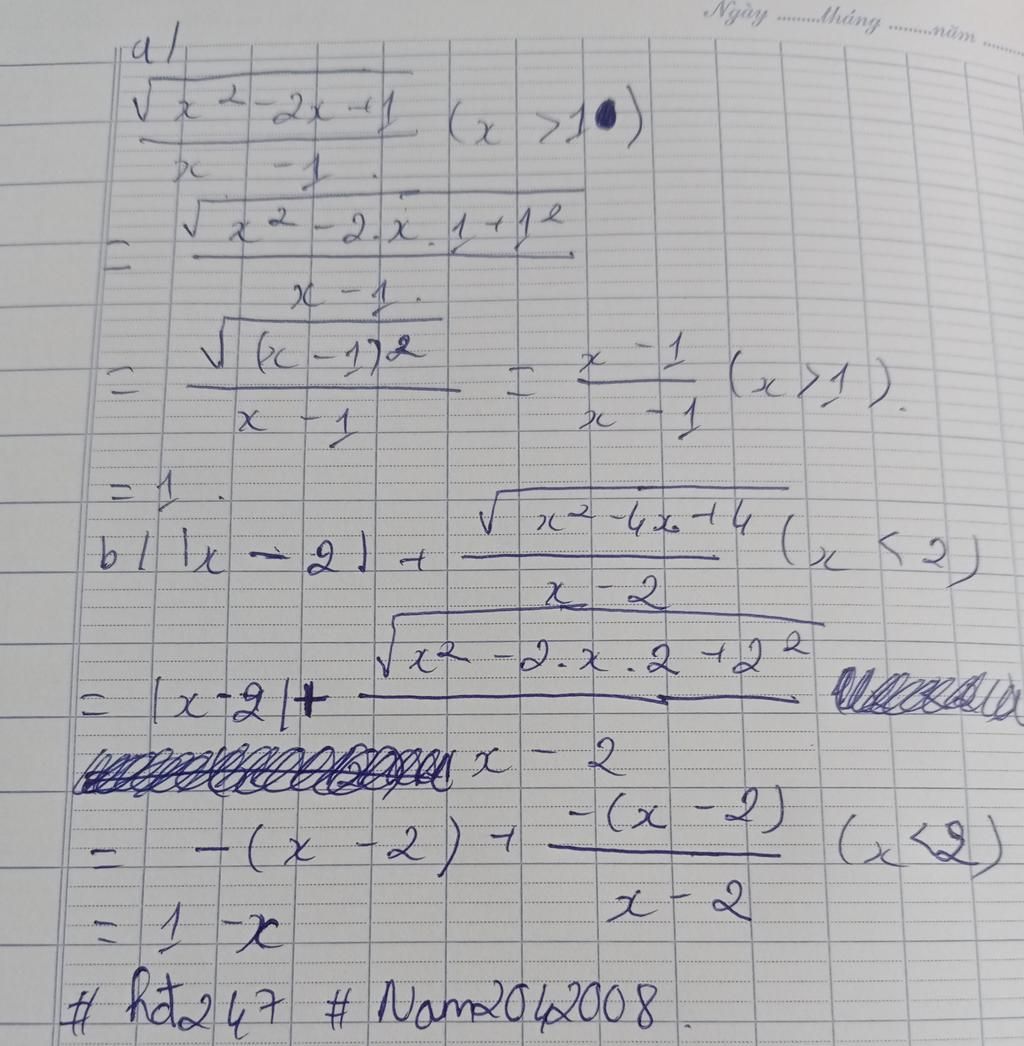 Ngày ........tháng ........năm ......
a/
√(x² - 2x + 1) / (x - 1) (x > 1)
= √(x² - 2.x.1 + 1²) / (x - 1)
= √((x - 1)²) / (x - 1) = (x - 1) / (x - 1) (x > 1).
= 1.
b/ |x - 2| + √(x² - 4x + 4) / (x - 2) (x < 2)
= |x - 2| + √(x² - 2.x.2 + 2²) / (x - 2)
= -(x - 2) + -(x - 2) / (x - 2) (x < 2)
= 1 - x
# hđ247 # Nam2042008.